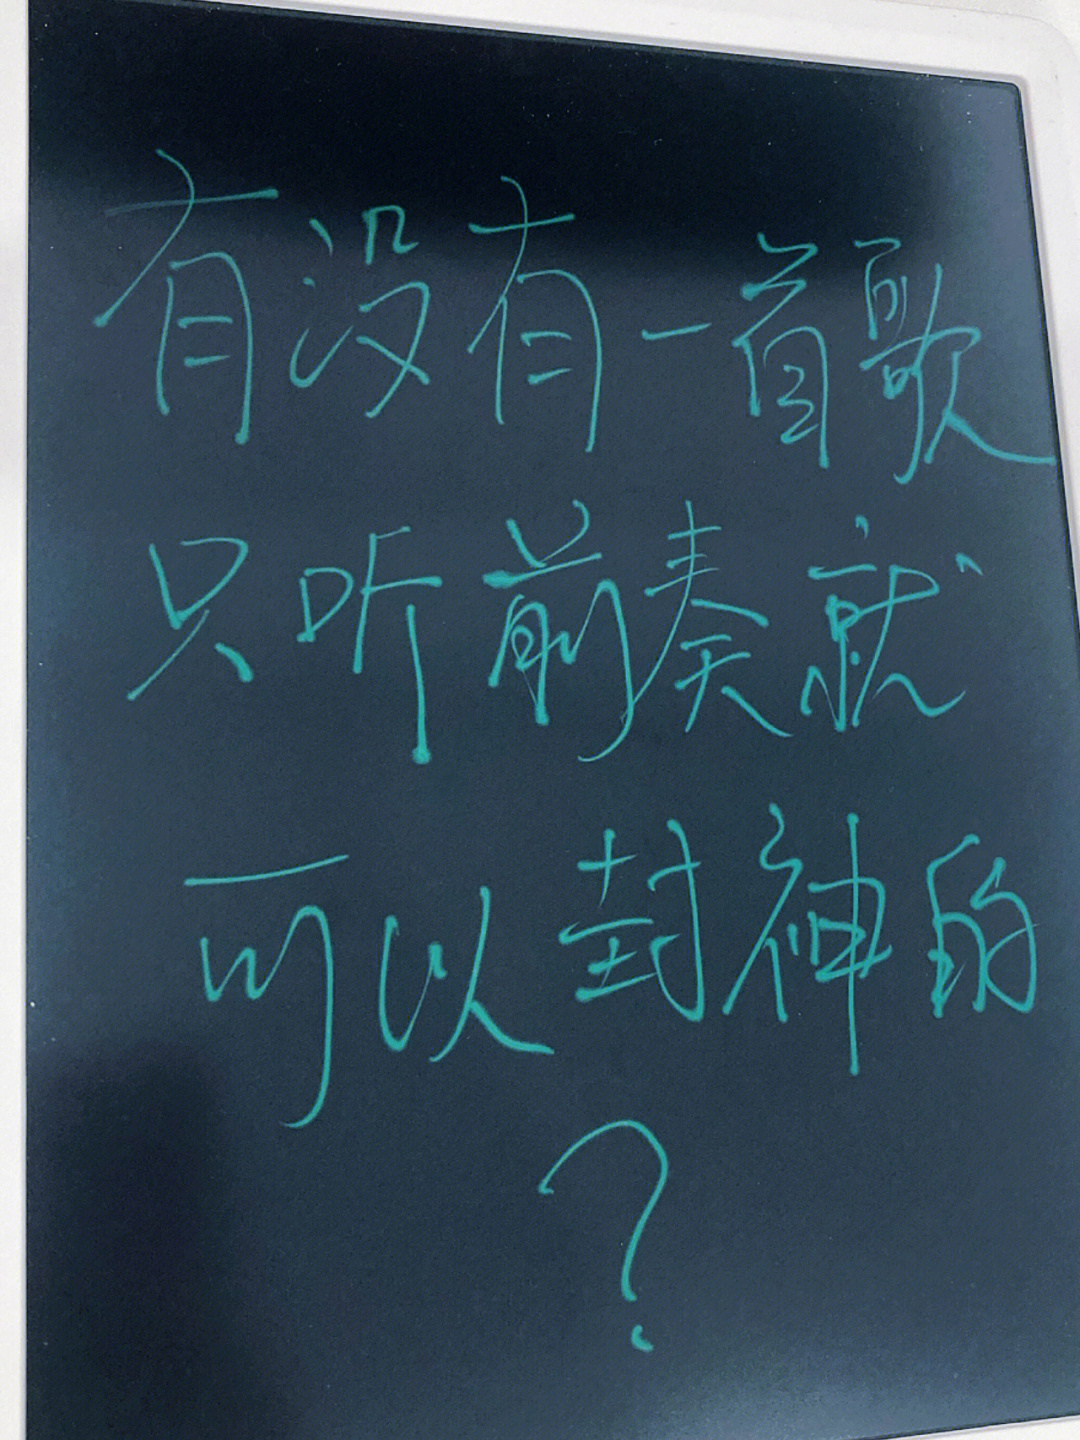 有没有一首歌
只听前奏就
可以封神的
?